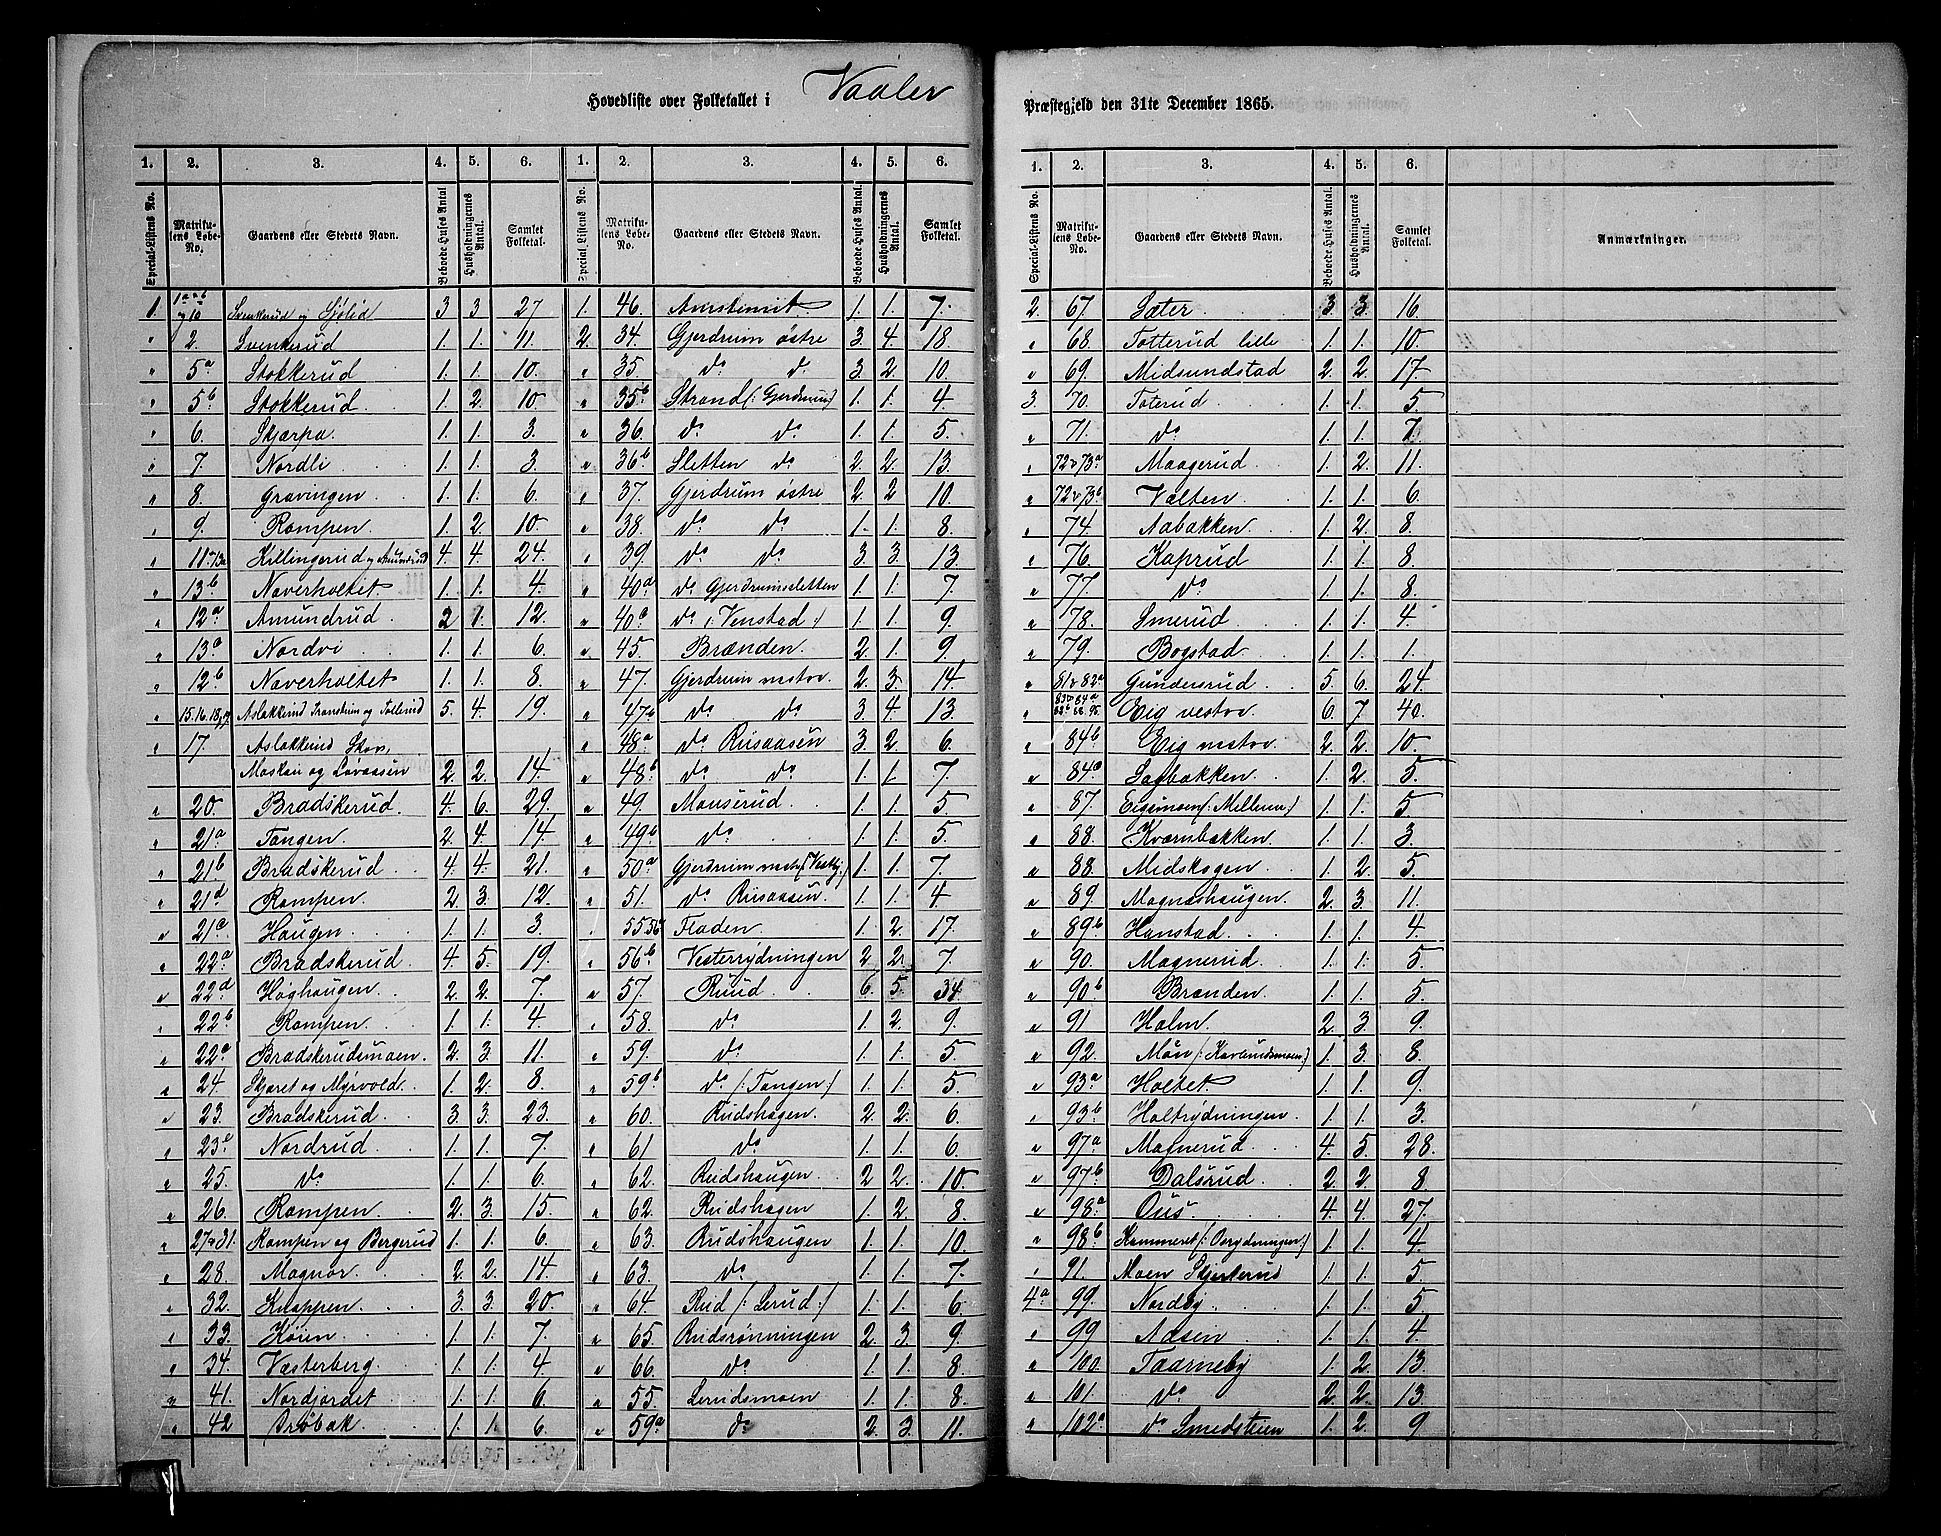 Hovedliste over Folketallet i Vaaler
Præstegjeld den 31te December 1865.
1. 2. 3. 4. 5. 6. 1. 2. 3. 4. 5. 6.
Special-Listens No. Matrikulens Løbe-No. Gaardens eller Stedets Navn. Beboede Huses Antal Husholdningernes Antal. Samlet Folketal. Special-Listens No. Matrikulens Løbe-No. Gaardens eller Stedets Navn. Beboede Huses Antal. Husholdningernes Antal. Samlet Folketal.
1. Svenkerud og Sjølid 3 3 27
" 2. Svenkerud 1. 1. 11.
" 5a Stokkerud 1. 1. 10.
" 5b Stokkerud. 1. 2. 10.
" 6. Skjærpa. 1. 1. 3.
" 7. Nordli 1. 1. 3.
" 8. Gravingen 1. 1. 6.
" 9. Rompen 1. 2. 10.
" Killingerud og Amundrud 4. 4. 24.
" 13b Naverholtet 1. 1. 4.
" 12a Amundrud 2 1. 12.
" 13a Nordvi 1. 1. 6.
" 12b Naverholtet 1. 1. 8.
" 5. 4. 19.
" 17. Aslakkerud
2. 2. 14.
" 20. Bradskerud 4. 6. 29.
" 21a Tangen 2. 4. 14.
" 21b Bradskerud 4. 4. 21.
" 21d Rompen 2. 3. 12.
" Haugen 1. 1. 3.
" Bradskerud 4. 5. 19.
" 22d Høghaugen 2. 2. 7.
" 22b Rompen 1. 1. 4.
" Bradskerudsmoen 2. 3. 11.
" 24. Skjæret og Myrvold 1. 2. 8.
" 23. Bradskerud 3. 3. 23.
" Nordrud 1. 1. 7.
" 25. do 1. 1. 6.
" 26. Rompen 2. 3. 15.
" Rompen og Bergerud 1. 1. 6.
" 28. Magnor 2. 2. 14.
" 32. Knappen 3. 3. 20.
" 33. Køien 1. 1. 7.
" 34. Væsterberg 1. 1. 4.
" 41. Nordjordet 1. 1. 6.
" 42 Arøbak 1. 1. 6.
1. 46. 1. 1. 7.
2. 34. Gjerdrum østre 3. 4. 18.
" 35 do do 3. 2. 10.
" 35b Strand (: Gjerdrum) 1. 1. 4.
" 36. do do 1. 1. 5.
" 36b Sletten do 2. 2. 13.
" 37. Gjerdrum østre 2. 2 10.
" 38. do do 1. 1. 8.
" 39. do do 3. 3. 13.
" 40a do Gjerdrumssletten 1. 1. 7.
" do (: Venstad :) 1. 1. 9.
" 45. Brænden 2. 1. 9
" 47. Gjerdrum vestre 2. 3. 14.
" 47b do do 3. 4. 13.
" 48a do Riisaasen 3. 2. 6.
" 48b do do 1. 1. 7.
" 49. Monserud 1. 1. 5
" 49b do 1. 1. 5.
" 50a Gjerdrum vestre 1. 1. 7.
" 51. do Riisaasen 1. 1. 4
" Fladen 1. 2. 17.
" 56b Vesterrydningen 2 2. 7.
" 57. Ruud 6. 5. 34.
" 58. do 1. 2. 9.
" 59. do 1. 1. 5.
" 59b do (: Tangen :) 1. 1. 5
" 60. Rudshagen 2. 2. 6.
" 61 do 1. 1. 6.
" 62. Rudshaugen 2 2. 10.
" 62. Rudshagen 1. 2. 8.
" 63. Rudshaugen 1. 1. 10.
" 63. do 1. 1. 7.
" 64. Rud (: Lerud :) 1. 1. 6.
" 65 Rudsrønningen 2. 3. 9.
" 66. do 1. 1. 8.
" 55. Lerudsmoen 1. 1. 8.
" 59a do 2. 3. 11.
1. 2. 3. 4. 5. 6.
Special-Listens No. Matrikulens Løbe-No. Gaardens eller Stedets Navn. Beboede Huses Antal. Husholdningernes Antal. Samlet Folketal. Anmærkninger.
2. 67. Sæter 3. 3. 16.
" 68. Totterud lille 1. 1. 10.
" 69. Midsundstad 2. 2. 17
3. 70. Toterud 1. 1. 5.
" 71. do 1. 1. 7.
" 72 & 73a Maagerud 1. 2. 11.
" 72 & 73b Valten 1. 1. 6.
" 74. Aabakken 1. 2. 8.
" 76. Kaprud 1. 1. 8.
" 77. do 1. 1. 8.
" 78. Smerud 1. 1. 4.
" 79. Bogstad 1. 1. 1.
" 81 & 82a Gundersrud 5. 6. 24.
" Eig vestre 6. 7. 40.
" 84b Eig vestre 2. 2. 10.
" Sagbakken 1. 2. 5.
" 87. Eigsmoen (: Mellem :) 1. 1. 5
" 88. Kværnbakken 1. 1. 3.
" 88. Midskogen 1. 2. 5.
" 89. Magnæshaugen 2. 3. 11.
" 89b Hanstad 1. 1. 4.
" 90. Magnerud 1. 1. 5.
" 90b Brænden 1. 1. 5.
" 91 Holm 2. 3. 9.
" 92. Moen 1. 3. 8.
" 93a Holtet 1. 1. 9.
" 93b Holtrydningen 1. 1. 3.
" 97a Magnerud 4. 5. 28.
" 97b Dalsrud 2. 2. 8
" 98a Ous 4. 4. 27.
" 98b Kammeret (: Osrydningen :) 1. 1. 4.
" 91. Moen Skjerkerud 1. 1. 5.
4a 99. Nordby 1. 1. 5.
" 99 Aasen 1. 1. 4.
" 100. Taarneby 1. 2. 13
" 101. do 2. 2. 13.
" 102a do Smedstuen 1. 2. 9